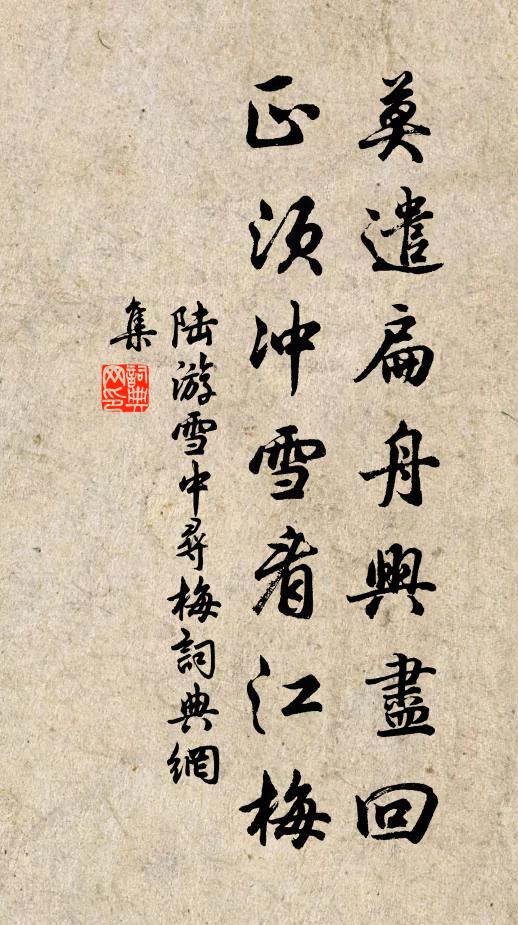 莫遣扁舟興盡回
正須冲雪看江梅
陸游雪中尋梅詞典網
集
詞典
网印